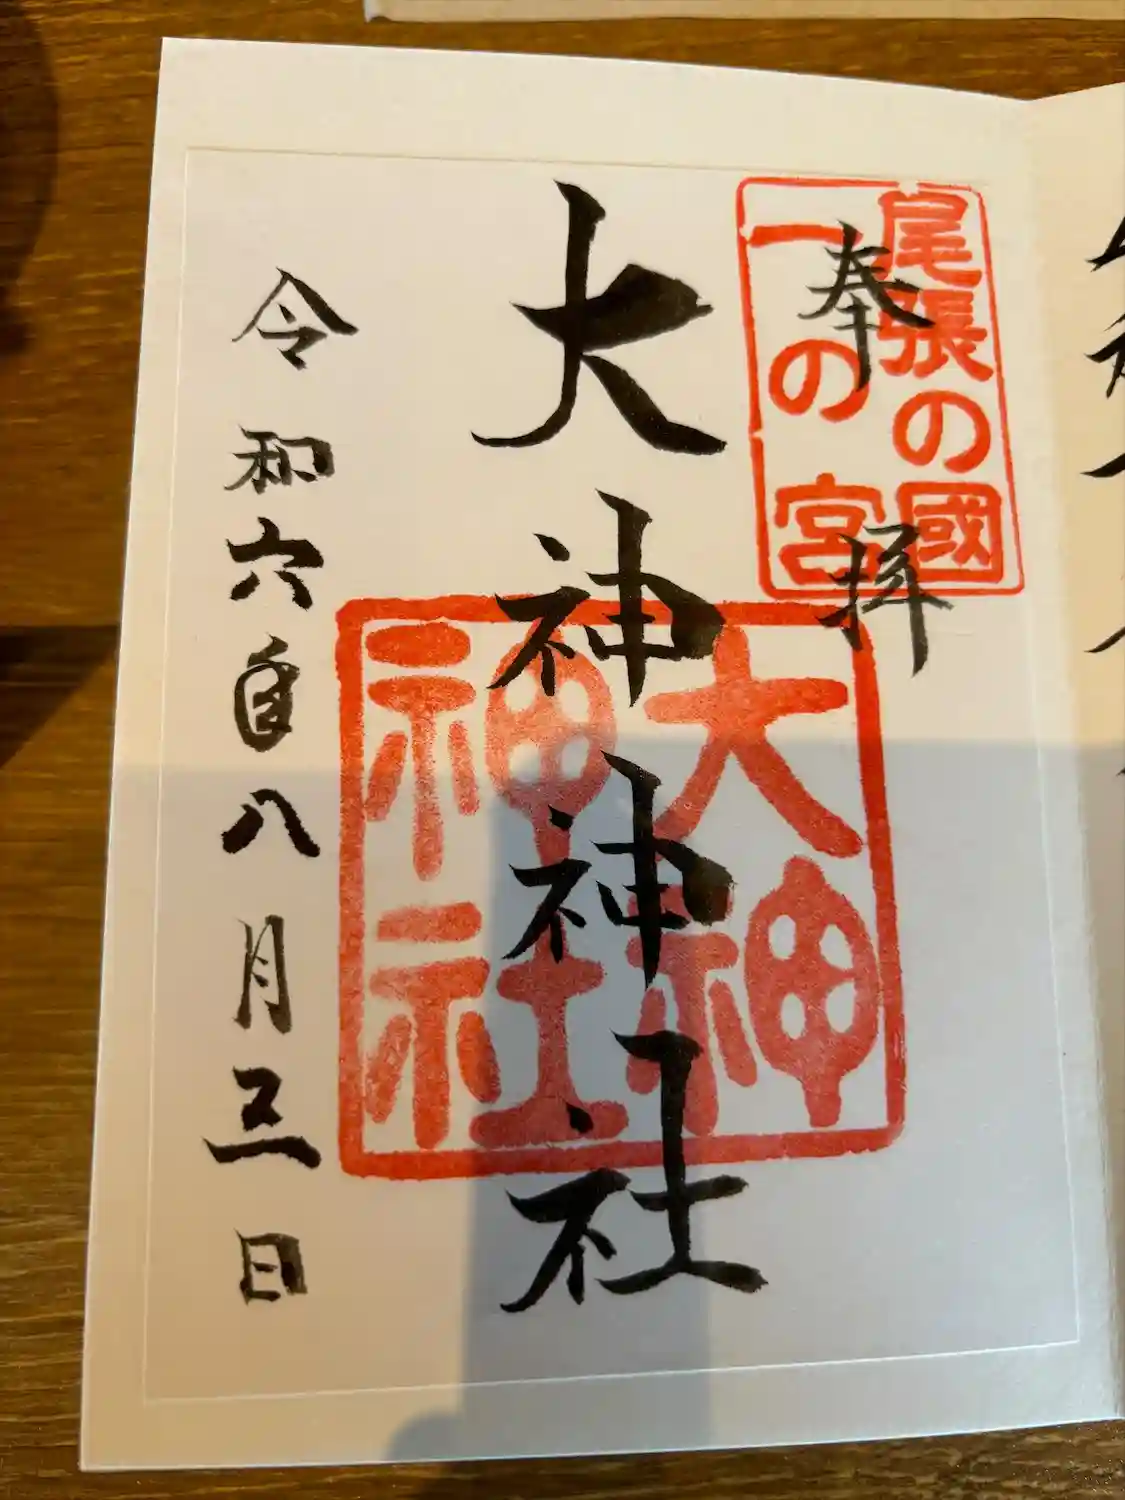 奉拝
尾張の國
一の宮
大神神社
大神
神社
令和六年八月三日